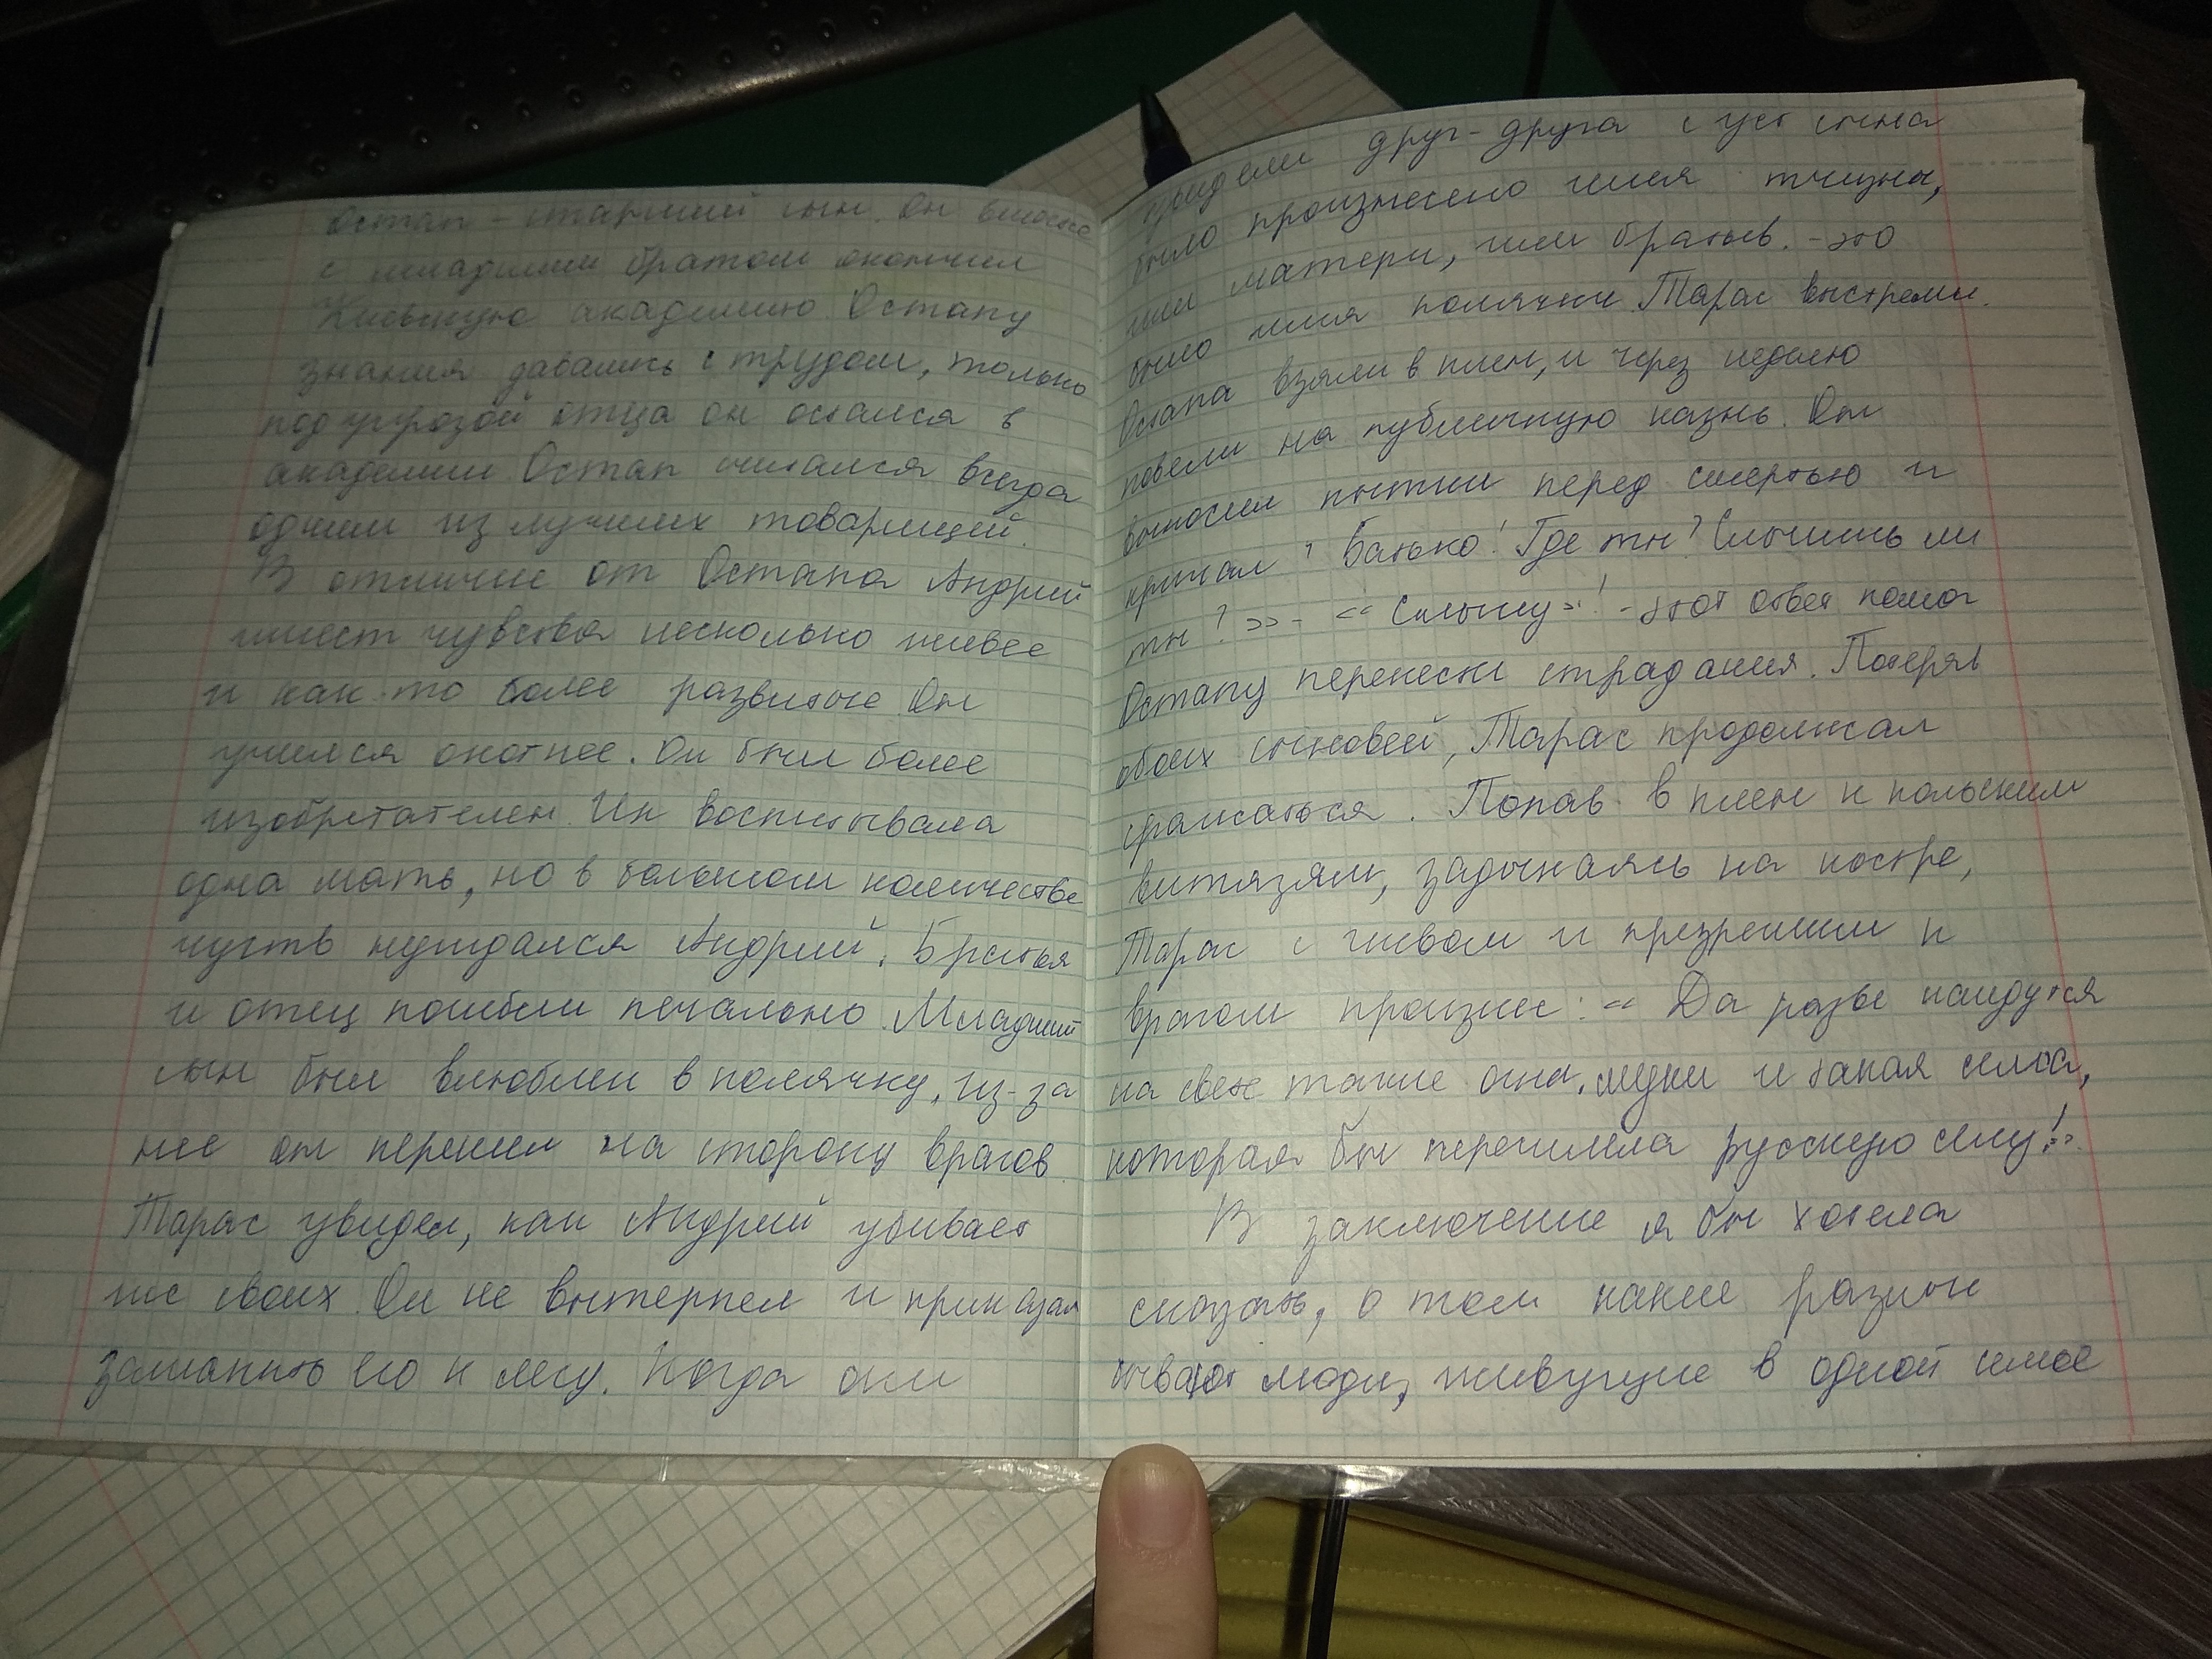 Остап - старший сын. Он вместе
с младшим братом окончил
Киевскую академию. Остапу
знания давались с трудом, только
под угрозой отца он остался в
академии. Остап считался всегда
одним из лучших товарищей.
В отличие от Остапа Андрий
имеет чувства несколько живее
и как-то более развитое. Он
учился охотнее. Он был более
изобретателен. Их воспитывала
одна мать, но в большом количестве
чувств нуждался Андрий. Братья
и отец погибли печально. Младший
сын был влюблен в полячку, из-за
нее он перешел на сторону врагов.
Тарас увидел, как Андрий убивает
своих. Он не вытерпел и приказал
заманить его к лесу. Когда они
увидели друг-друга с уст сына
было произнесено имя тчизны,
или матери, или братьев. - это
было имя полячки. Тарас выстрелил.
Остапа взяли в плен, и через неделю
повели на публичную казнь. Он
выносил пытки перед смертью и
кричал " Батько! Где ты? Слышишь ли
ты? >> - << Слышу >>! - этот ответ помог
Остапу перенести страдания. Потеряв
обоих сыновей, Тарас продолжал
сражаться. Попав в плен к польским
витязям, задыхаясь на костре,
Тарас с гневом и презрением к
врагам произнес: << Да разве найдутся
на свете такие огни, муки и такая сила,
которая бы пересилила русскую силу! >>.
В заключение я бы хотела
сказать, о том какие разные
бывают люди, живущие в одной семье